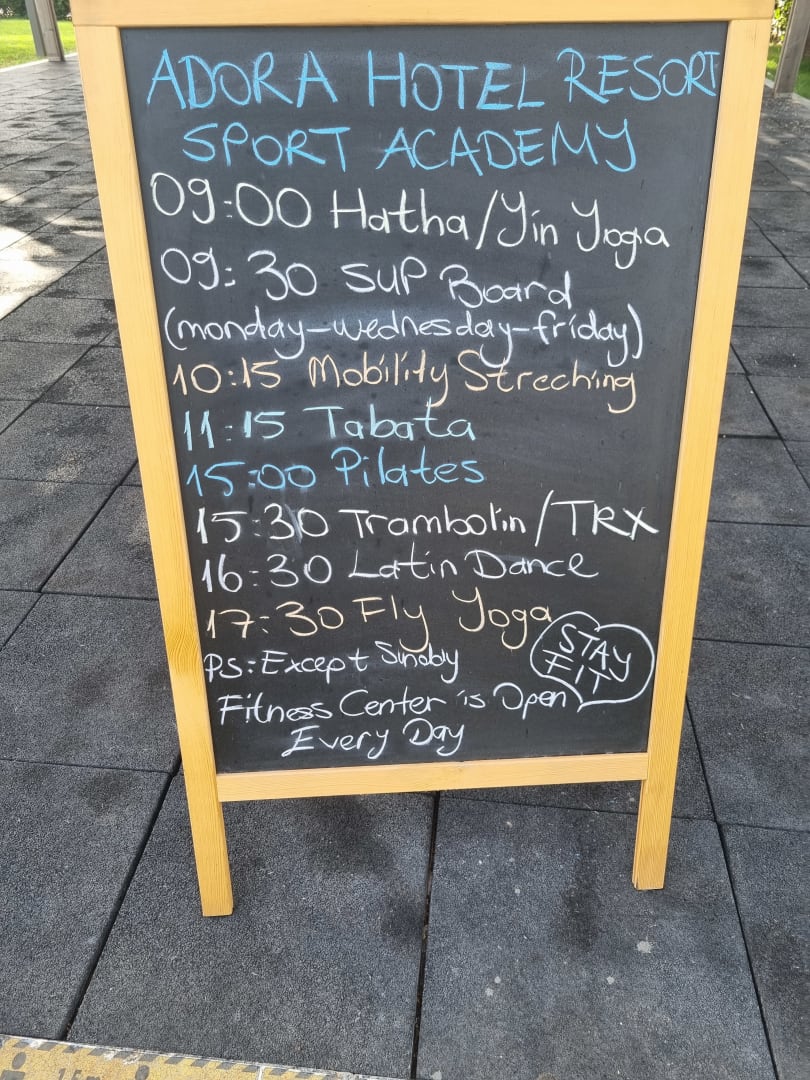 ADORA HOTEL RESORT
SPORT ACADEMY
09:00 Hatha/Yin Yoga
09:30 SUP Board
(monday-wednesday-friday)
10:15 Mobility Streching
11:15 Tabata
15:00 Pilates
15:30 Trambolin/TRX
16:30 Latin Dance
17:30 Fly Yoga
Ps: Except Sunday
STAY
FIT
Fitness Center is Open
Every Day
1.5m